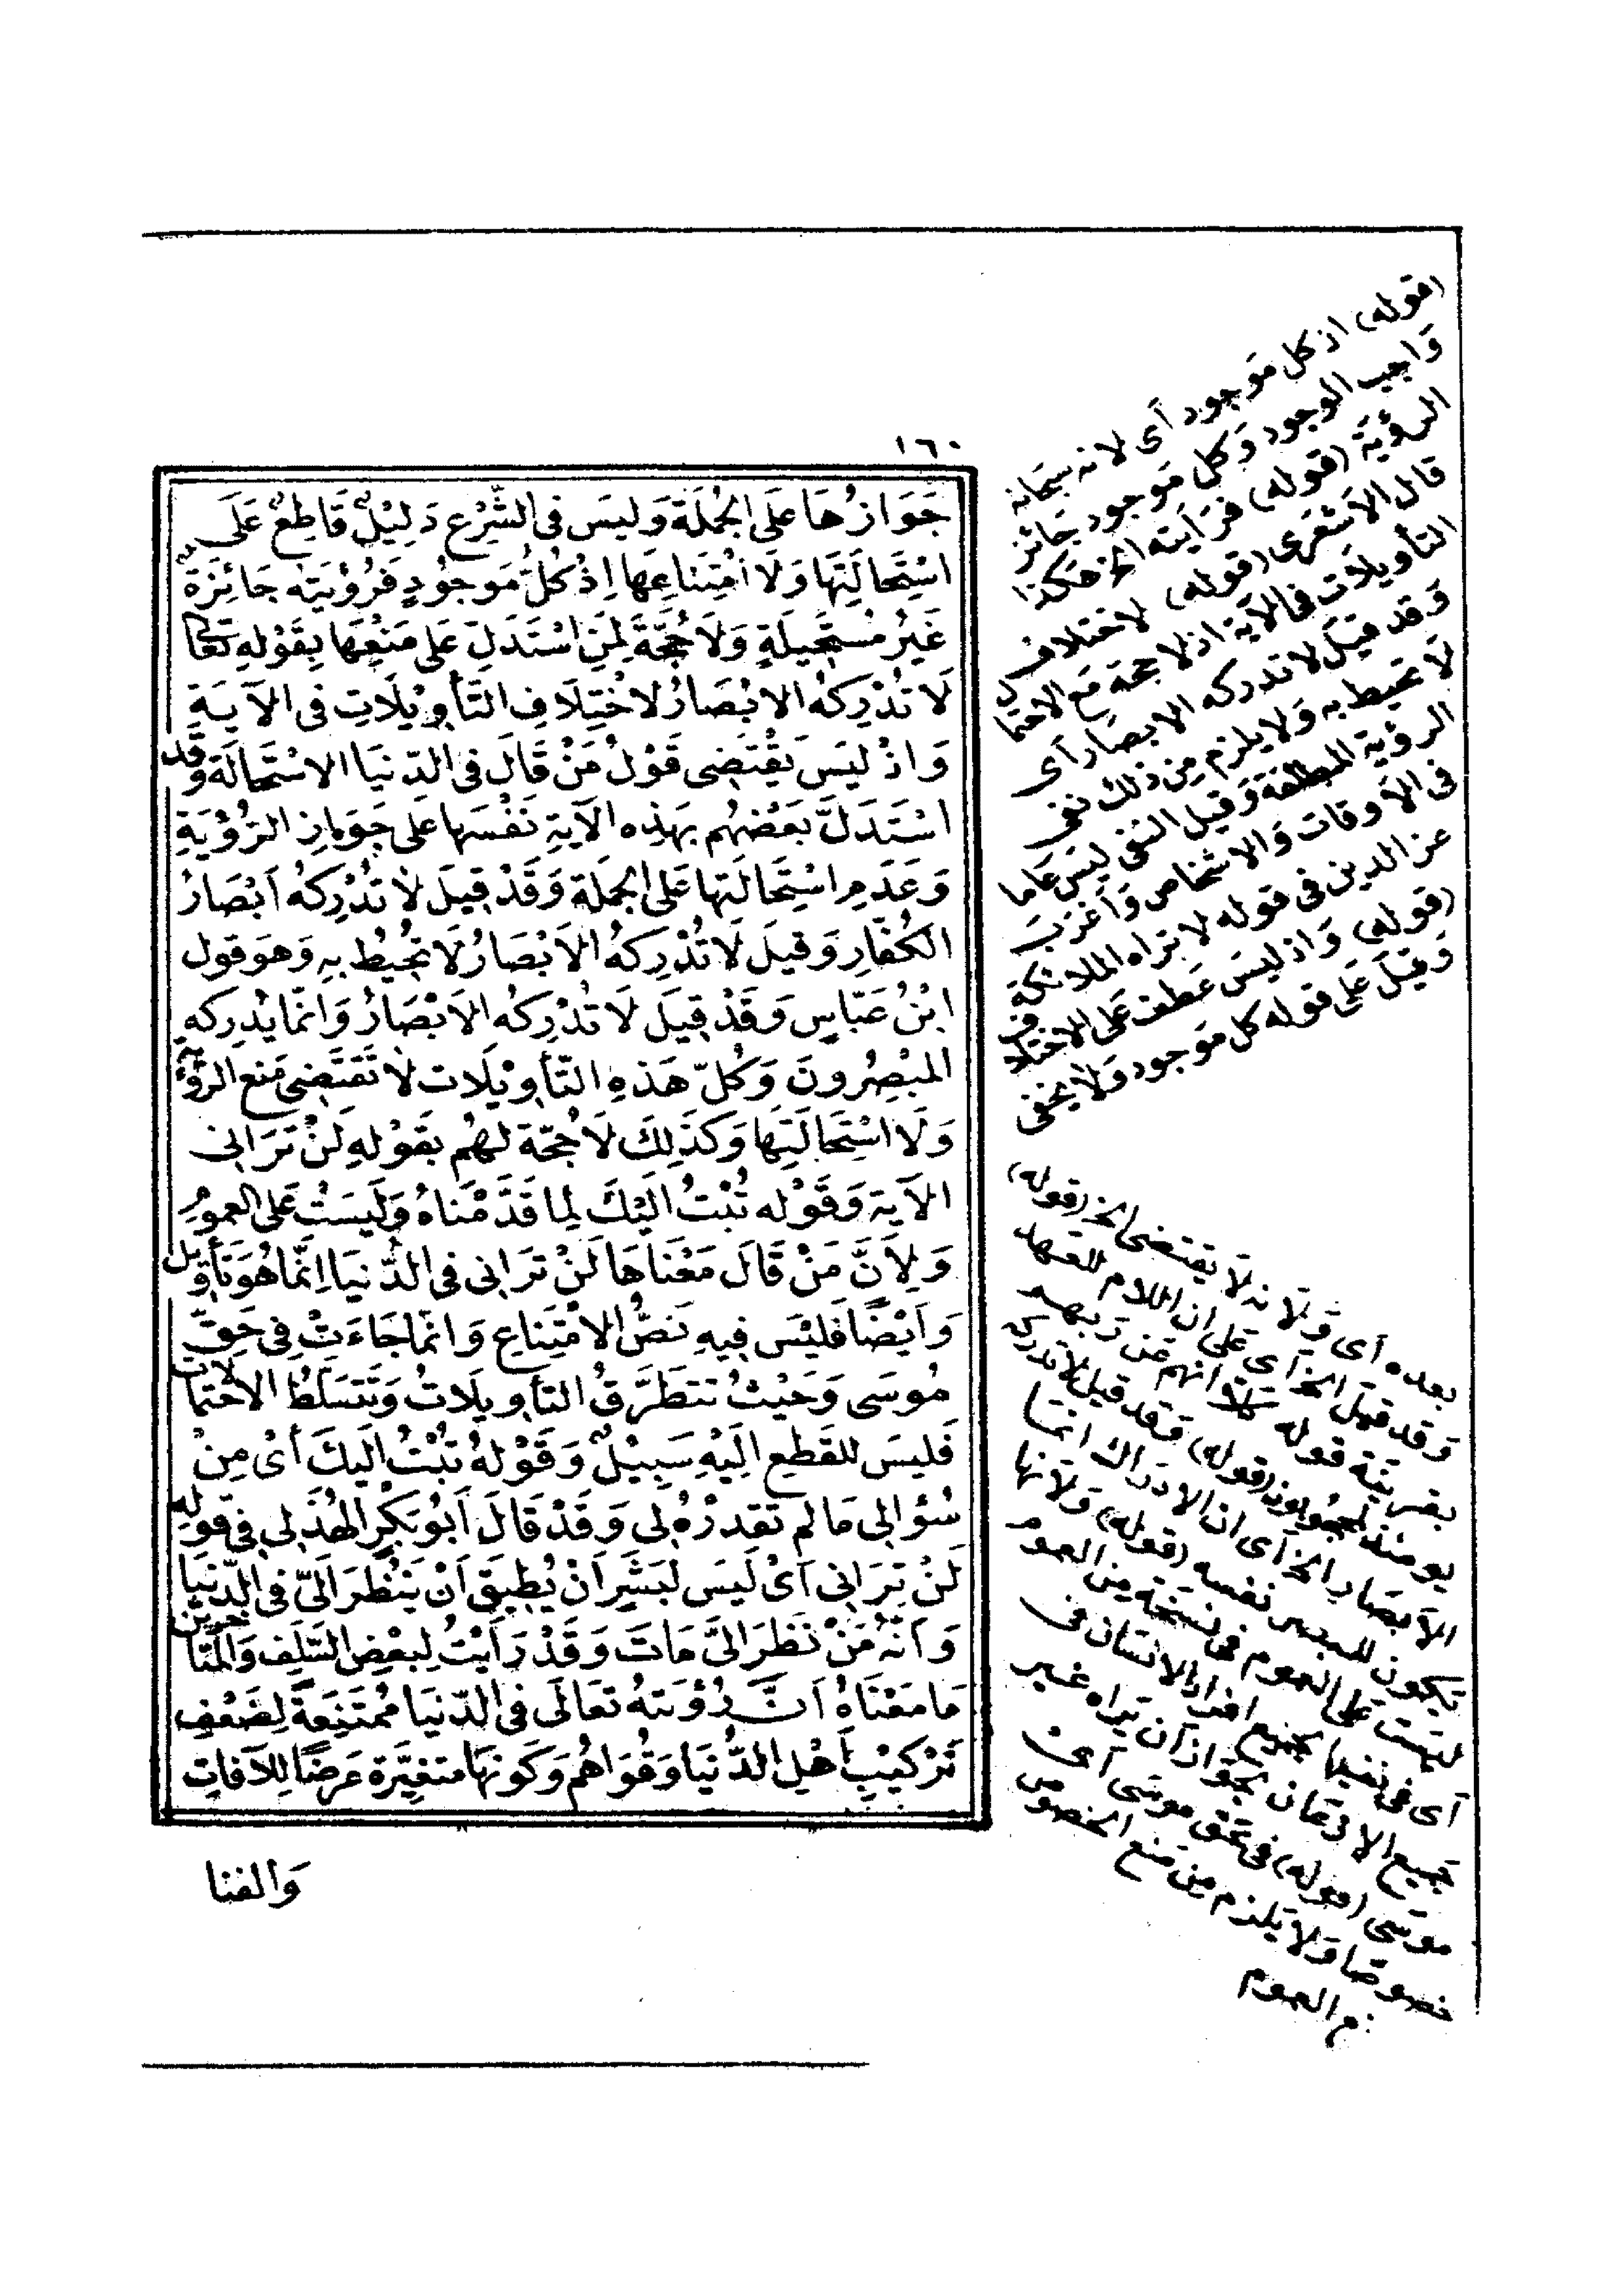 ١٦٠
جَوَازُهَا عَلَى الجُمْلَةِ وَلَيسَ فى الشَّرْعِ دَلِيْلٌ قَاطِعٌ عَلَى
اسْتِحَالَتِهَا وَلَا امْتِنَاعِهَا اِذْ كُلُّ مَوجُودٍ فَرُؤْيَتُه جَائِزَةٌ
غَيْرُ مُسْتَحِيلَةٍ وَلَا حُجَّةَ لِمَنِ اسْتَدَلَّ عَلى مَنْعِهَا بِقَوْلِهِ تَعَالى
لَا تُدْرِكُهُ الابْصَارُ لاخْتِلَافِ التَّأْوِيْلَاتِ فى الآيَةِ
وَاذْ لَيسَ يَقْتَضِى قَوْلُ مَنْ قَالَ فى الدّنْيَا الاسْتِحَالَةَ وَقَد
اسْتَدَلَّ بَعْضُهُم بِهَذِه الآيَةِ نَفْسِهَا عَلى جَوَازِ الرُّؤْيَةِ
وَعَدَمِ اسْتِحَالَتِهَا عَلى الجُمْلَةِ وَقَدْ قِيلَ لَا تُدْرِكُهُ أَبْصَارُ
الكُفَّارِ وَقِيلَ لَا تُدْرِكُهُ الاَبْصَارُ لَا تُحِيْطُ بِهِ وَهوَ قول
ابْنُ عَبّاسٍ وَقَدْ قِيلَ لَا تُدْرِكُه الاَبْصَارُ وَانّمَا يُدْرِكه
المُبْصِرُونَ وَكُلّ هَذِهِ التَّأوِيْلَات لَا تَقتَضِى مَنع الرُّؤية
وَلَا اسْتِحَالَتِهَا وَكَذَلِكَ لَا حُجّة لَهُم بقَوْلهِ لَنْ تَرَانِى
الآيَة وَقَوْله تُبْتُ الَيْكَ لِمَا قَدَّمْنَاهُ وَلَيسَتْ عَلى العمُومِ
وَلِأَنَّ مَنْ قَالَ مَعْنَاهَا لَنْ تَرَانِى فى الدُّنيَا اِنَّمَا هُوَ تَأوِيل
وَاَيْضًا فَلَيْسَ فِيهِ نَصُّ الامْتِنَاعِ وَانّمَا جَاءَتْ فِى حَقِّ
مُوسَى وَحَيْثُ تَتَطَرَّقُ التأوِيلَاتُ وَتَتَسَلّطُ الاحْتِمَالَات
فَلَيسَ للقَطعِ الَيْهِ سَبِيْلٌ وَقَوْلهُ تُبْتُ الَيكَ أَىْ مِنْ
سُؤالِى مَا لم تقدرْهُ لى وَقَدْ قَالَ أَبُو بَكْرٍ الهُذَلى فِى قَوْلِه
لَنْ تَرَانِى اَىْ لَيسَ لبَشَرٍ اَنْ يُطِيقَ اَنْ يَنْظُرَ الَىَّ فى الدّنيَا
وَاَنّهُ مَنْ نَظَرَ الىَّ مَاتَ وَقَدْ رَاَيْتُ لِبَعْضِ السَّلَفِ وَالمتَأخّرِين
مَا مَعْنَاهُ اَنَّ رُؤيَتَهُ تَعَالَى فى الدّنيَا مُمْتَنِعَةٌ لِضَعْفِ
تَرْكِيْبِ اَهْلِ الدُّنيَا وَقُوَاهُم وَكَونِهَا متغيّرةً عَرَضًا لِلآفَاتِ
وَالفنا
(قوله) اذ كل مَوجود أى لانه سبحانه
وَاجب الوجود وَكل مَوجود جَائز
الرؤيَة (قوله) فرؤيته الخ هكذا
قال الاشعَرى (قوله) لاختلاف
التأويلات فى الآيَة اذ لا حجة مَع الاحتمال
وَقد قيلَ لا تدركه الابصار أى
لَا تحيط به وَلا يلزم مِن ذلك نفى
الرؤيَة المطلقة وَقيل النفى ليسَ عَاما
فى الأوقات وَالاشخاص وَأغرَب
عز الدين فى قوله لا تراه الملائكة
(قوله) وَاذ ليسَ عَطف عَلى الاختلاف
وَقيلَ عَلى قوله كل مَوجود وَلَا يخفى
بعده أى وَلانه لَا يقتضى الخ (قوله)
وَقد قيل الخ أى عَلى ان اللام للعهد
بقرينة قوله كلا انهم عَن ربهم
يومئذ لمحجوبون (قوله) وَقد قيل لا تدركه
الأبصَار الخ أى ان الادرَاك انما
يكون للمبصر نفسه (قوله) وَلانها
ليست عَلى العموم فى نسخة من العموم
جميع الازمَان بجَوَاز ان يَرَاه غير
موسَى (قوله) فى حَق موسَى أى
خصوصًا وَلا يلزم مِن مَنع الخصوص
م العموم